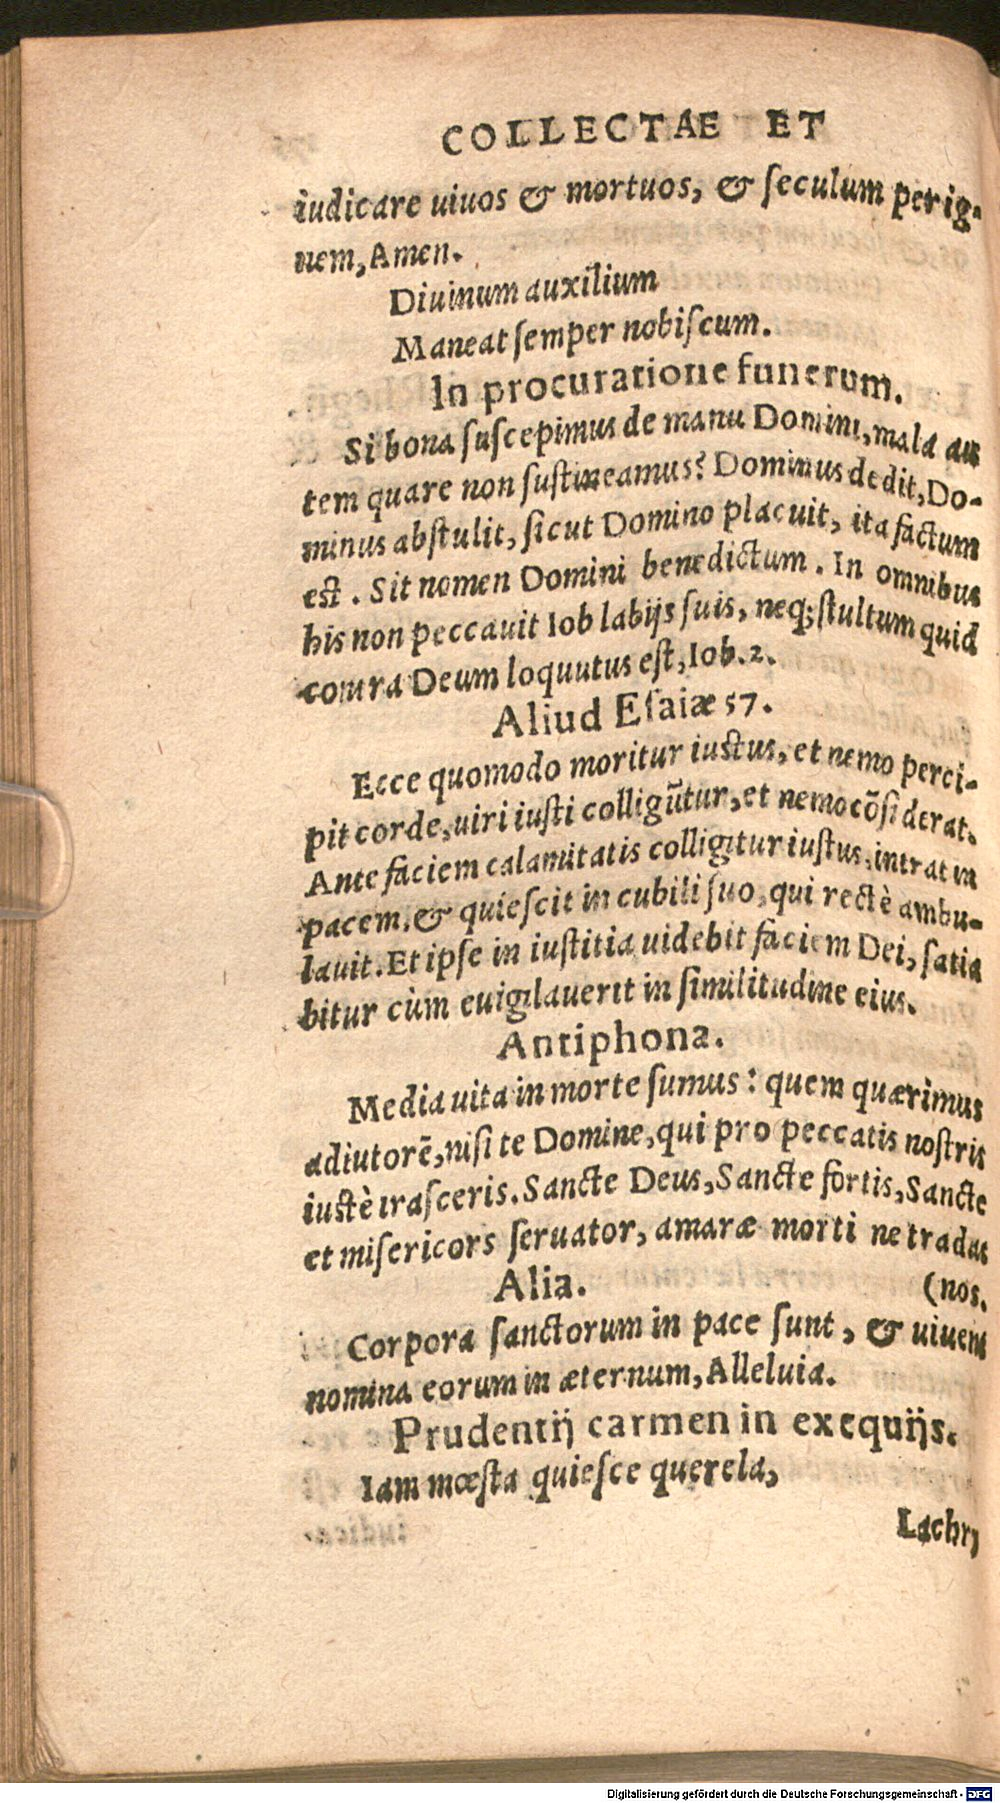 COLLECTAE ET
iudicare uiuos & mortuos, & ſeculum per ig-
nem, Amen.
Diuinum auxilium
Maneat ſemper nobiſcum.
In procuratione funerum.
Si bona ſuſcepimus de manu Domini, mala au
tem quare non ſuſtineamus? Dominus dedit, Do-
minus abſtulit, ſicut Domino placuit, ita factum
eſt. Sit nomen Domini benedictum. In omnibus
his non peccauit Iob labijs ſuis, neq; ſtultum quid
contra Deum loquutus eſt, Iob. 2.
Aliud Eſaiæ 57.
Ecce quomodo moritur iuſtus, et nemo perci-
pit corde, uiri iuſti colligũtur, et nemo cõſiderat.
Ante faciem calamitatis colligitur iuſtus, intrat in
pacem, & quieſcit in cubili ſuo, qui rectè ambu-
lauit. Et ipſe in iuſtitia uidebit faciem Dei, ſatia
bitur cùm euigilauerit in ſimilitudine eius.
Antiphona.
Media uita in morte ſumus: quem quærimus
adiutorẽ, niſi te Domine, qui pro peccatis noſtris
iuſtè iraſceris. Sancte Deus, Sancte fortis, Sancte
et miſericors ſeruator, amaræ morti ne tradas
Alia. (nos.
Corpora ſanctorum in pace ſunt, & uiuent
nomina eorum in æternum, Alleluia.
Prudentij carmen in exequijs.
Iam mœſta quieſce querela,
Lachry
Digitalisierung gefördert durch die Deutsche Forschungsgemeinschaft - DFG